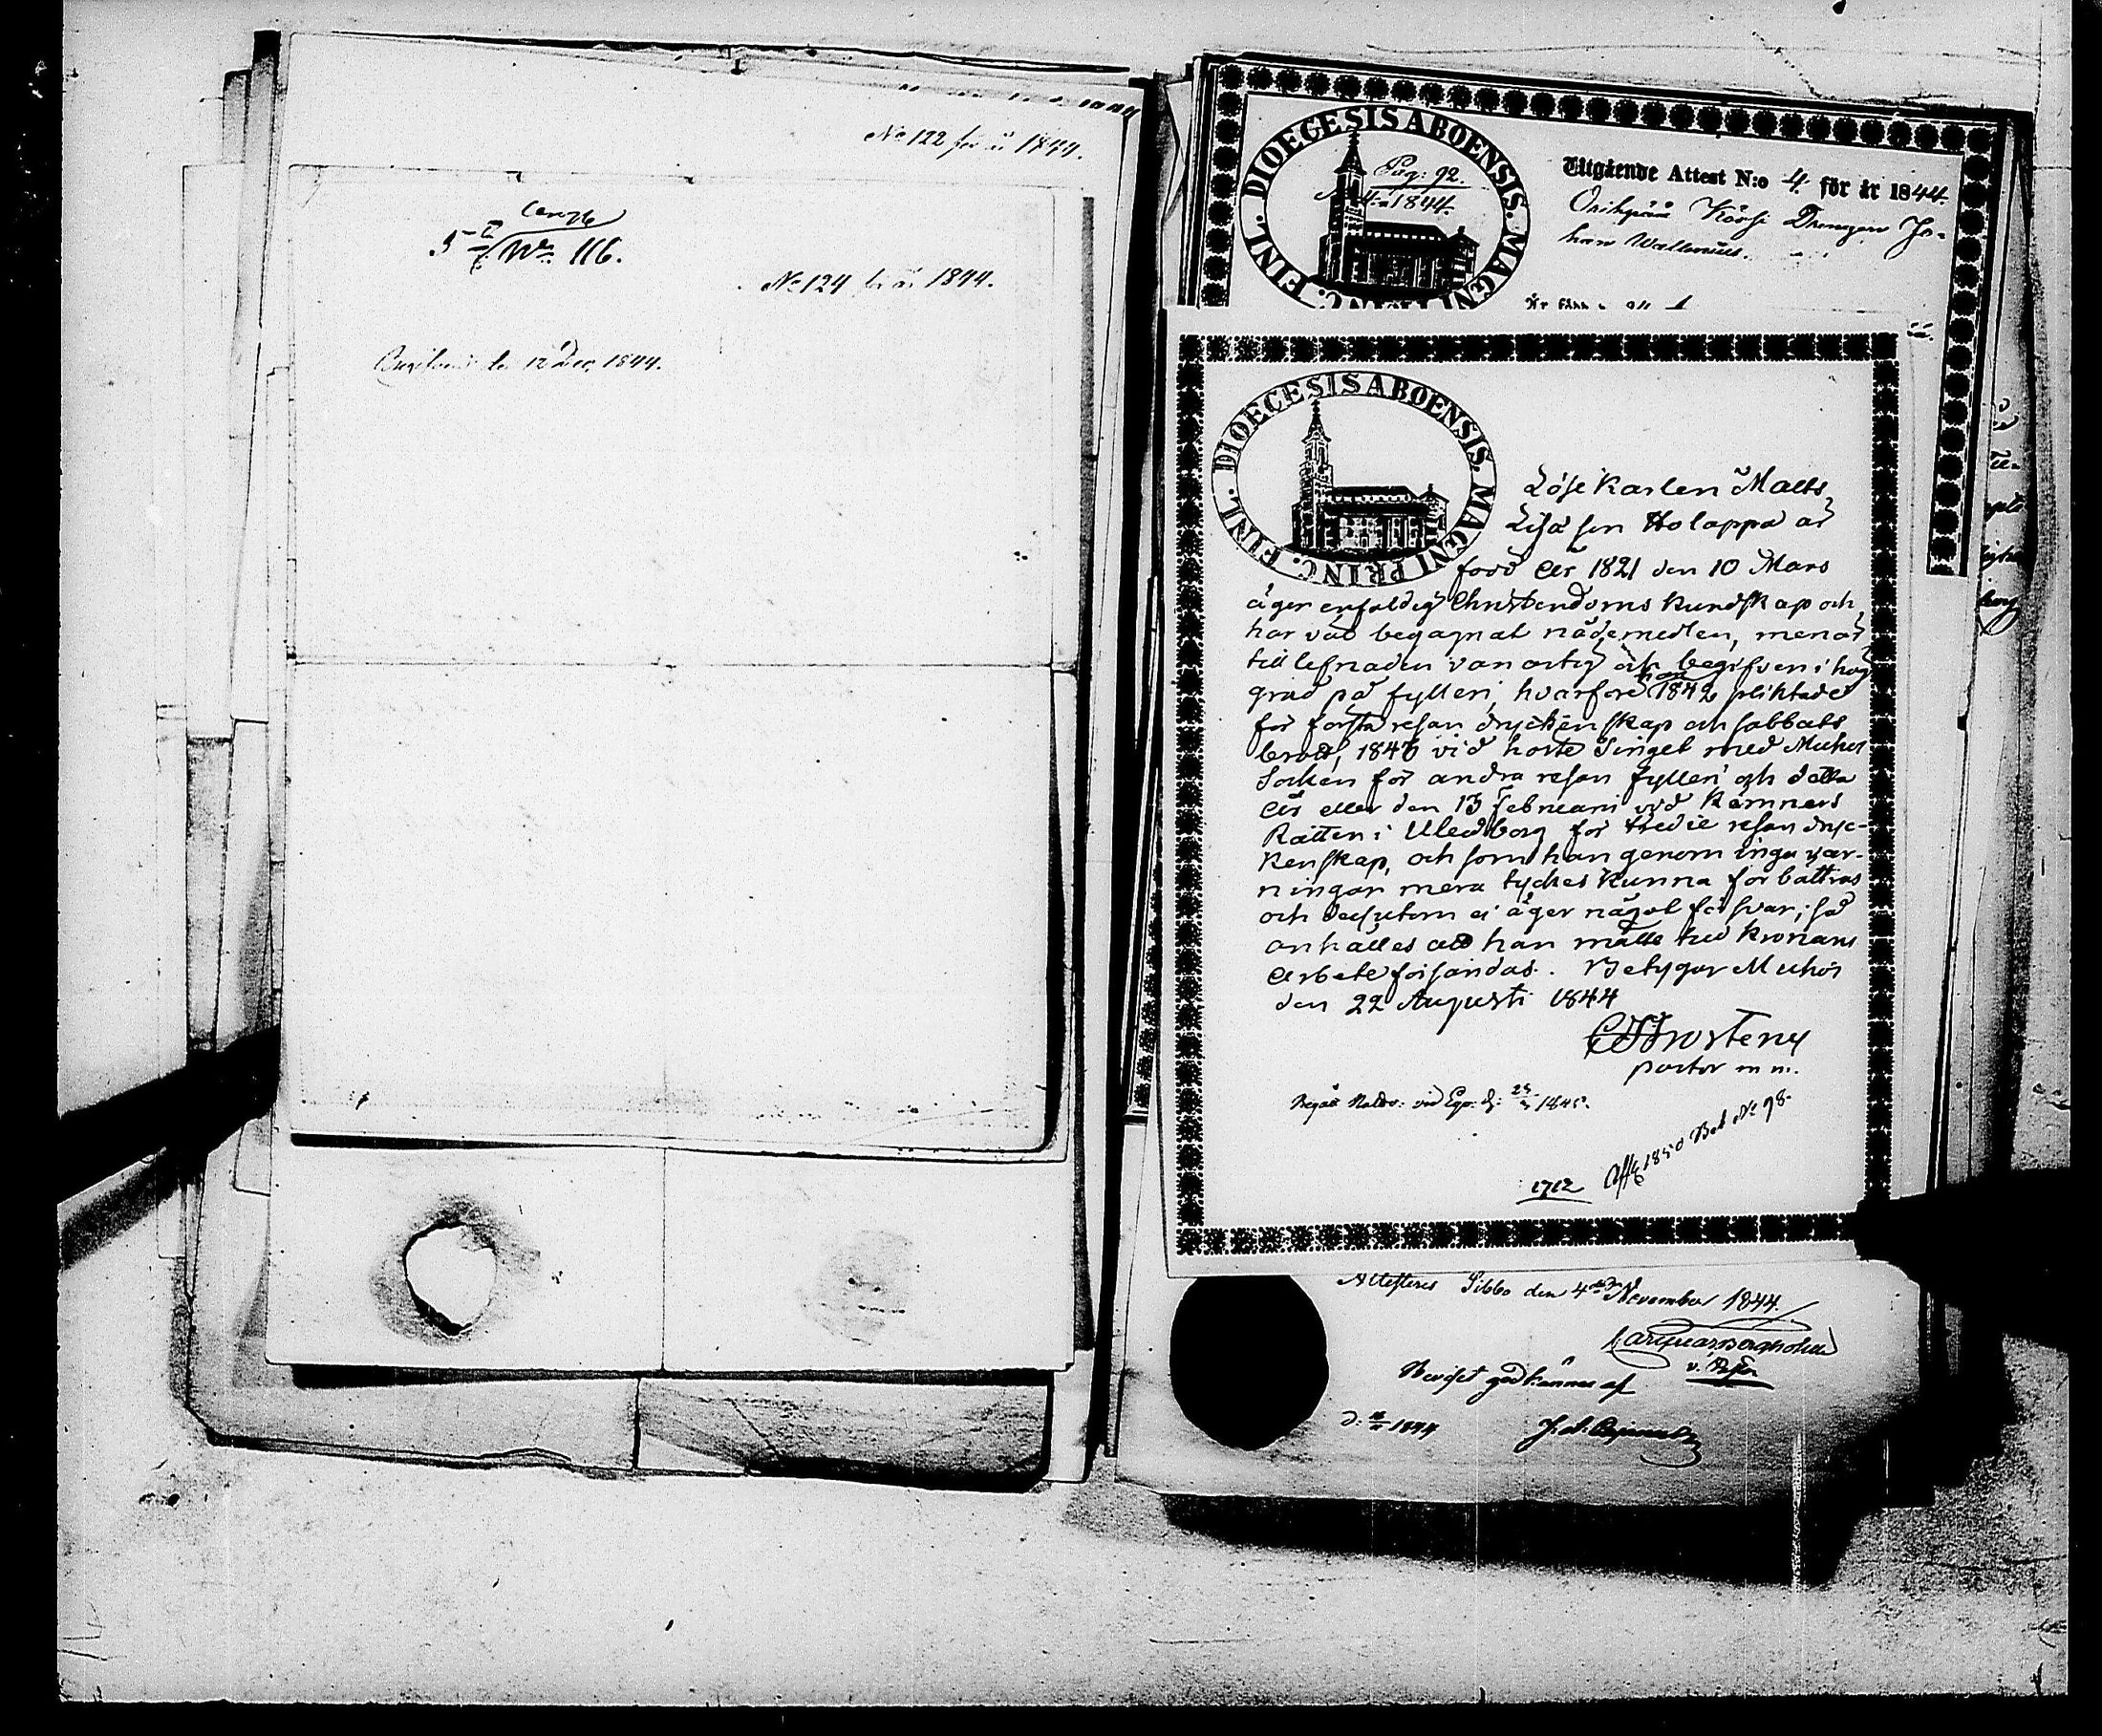 No 122 för år 1844.
No 116.
No 124 för år 1844.
12 Dec. 1844.
DIOECESIS ABOENSIS. MAGNI PRINC. FINL.
Pag: 92.
1844.
Utgående Attest N:o 4 för år 1844.
Drengen Jo-
han Wallenius.
DIOECESIS ABOENSIS. MAGNI PRINC. FINL.
Löse Karlen Matts
Lisasson Holappa är
född År 1821 den 10 Mars
äger enfaldig Christendoms Kundskap och
har väl begagnat nådemedlen, men är
till lefnaden vanartig och begifven i hög
grad på fylleri, hvarföre han 1842 pliktade
för första resan dryckenskap och sabbats
brott, 1843 vid höste Tinget med Muhos
Socken för andra resan fylleri och detta
År eller den 13 Februarii vid Kemners
Rätten i Uleåborg för tredie resan dryc-
kenskap, och som han genom inga var-
ningar mera tyckes kunna förbättras
och dessutom ei äger något försvar, så
anhålles att han måtte till Kronans
Arbete försändas. Betygar Muhos
den 22 Augusti 1844
C Frosterus
pastor m. m.
1845.
Aff 1850 Bet No 98.
1712
Attesteras Sibbo den 4 November 1844.
Beviset godkännes af
1844